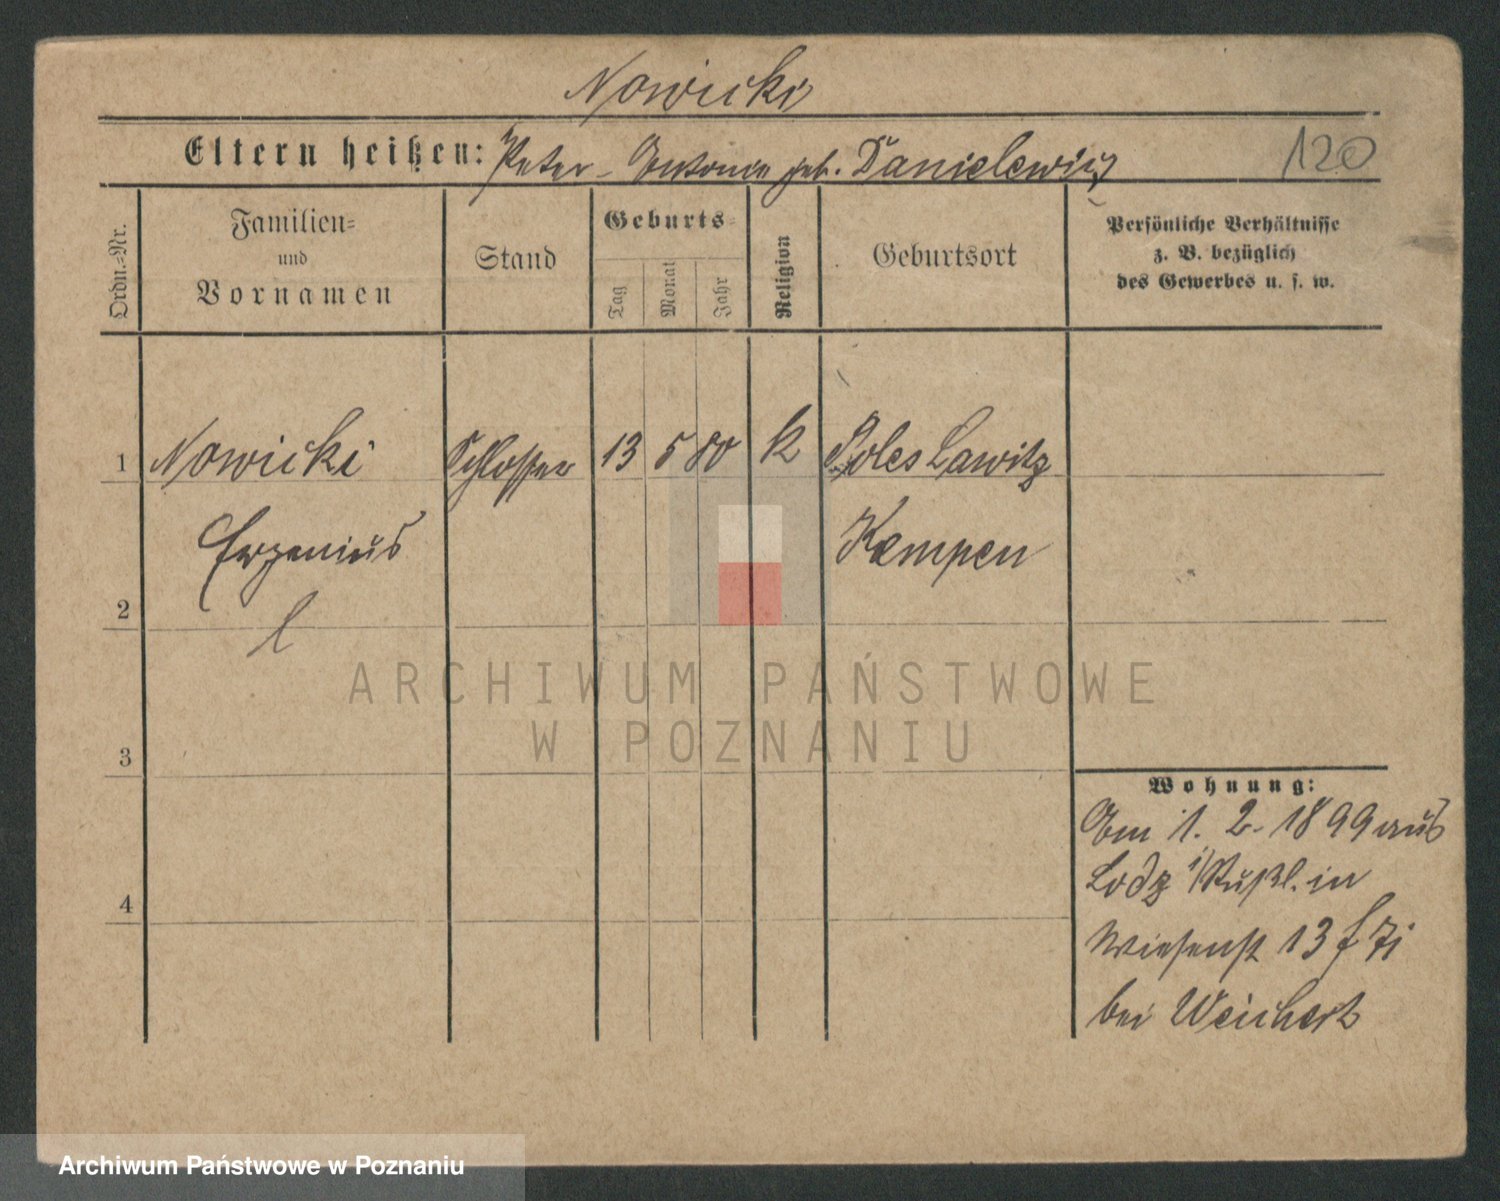 Nowicki
Eltern heißen: Peter - Antonie geb. Danielewicz
120
Ordn.-Nr.
Familien-
und
Vornamen
Stand
Geburts-
Tag
Monat
Jahr
Religion
Geburtsort
Persönliche Verhältnisse
z. B. bezüglich
des Gewerbes u. s. w.
1 Nowicki Schlosser 13 5 80 k Boleslawitz
Eugenius Kempen
l
2
3
4
Wohnung:
Am 1. 2. 1899 aus
Lodz i/Rußl. in
Wiesenst 13
bei Weichert
ARCHIWUM PAŃSTWOWE
W POZNANIU
Archiwum Państwowe w Poznaniu